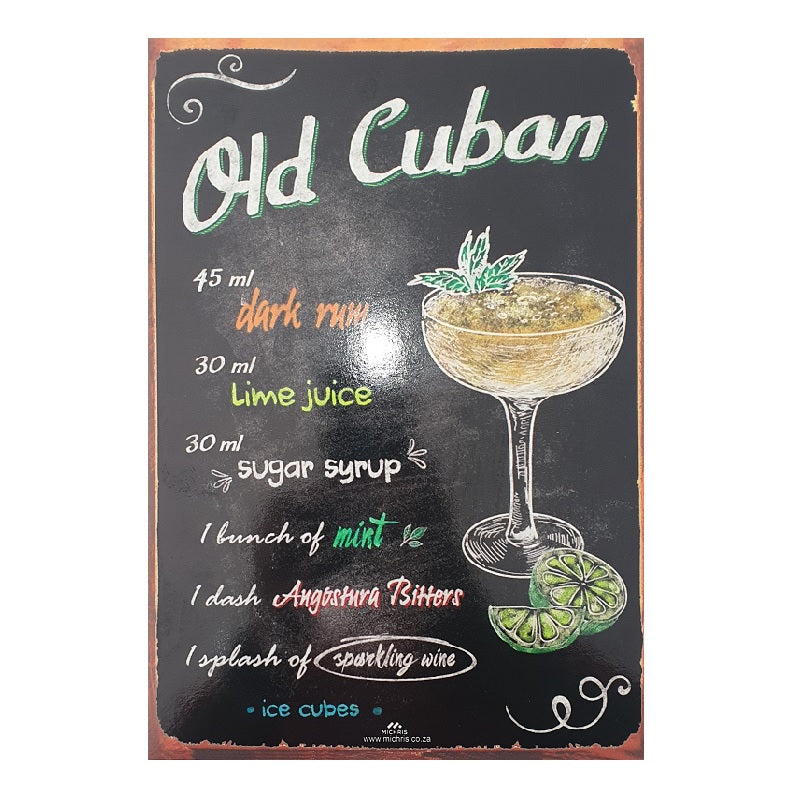 Old Cuban
45 ml
dark rum
30 ml
Lime juice
30 ml
sugar syrup
1 bunch of mint
1 dash Angostura Bitters
1 splash of sparkling wine
ice cubes
MICHRIS
www.michris.co.za